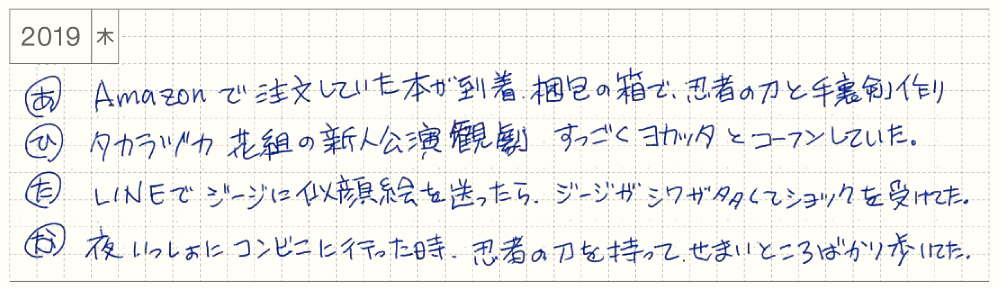 2019 木
あ Amazonで注文していた本が到着.梱包の箱で、忍者の刀と手裏剣作り
ひ タカラヅカ 花組の新人公演観劇 すっごくヨカッタとコーフンしていた。
た LINEでジージに似顔絵を送ったら、ジージがシワが多くてショックを受けてた。
な 夜いっしょにコンビニに行った時、忍者の刀を持って、せまいところばかり歩いてた。